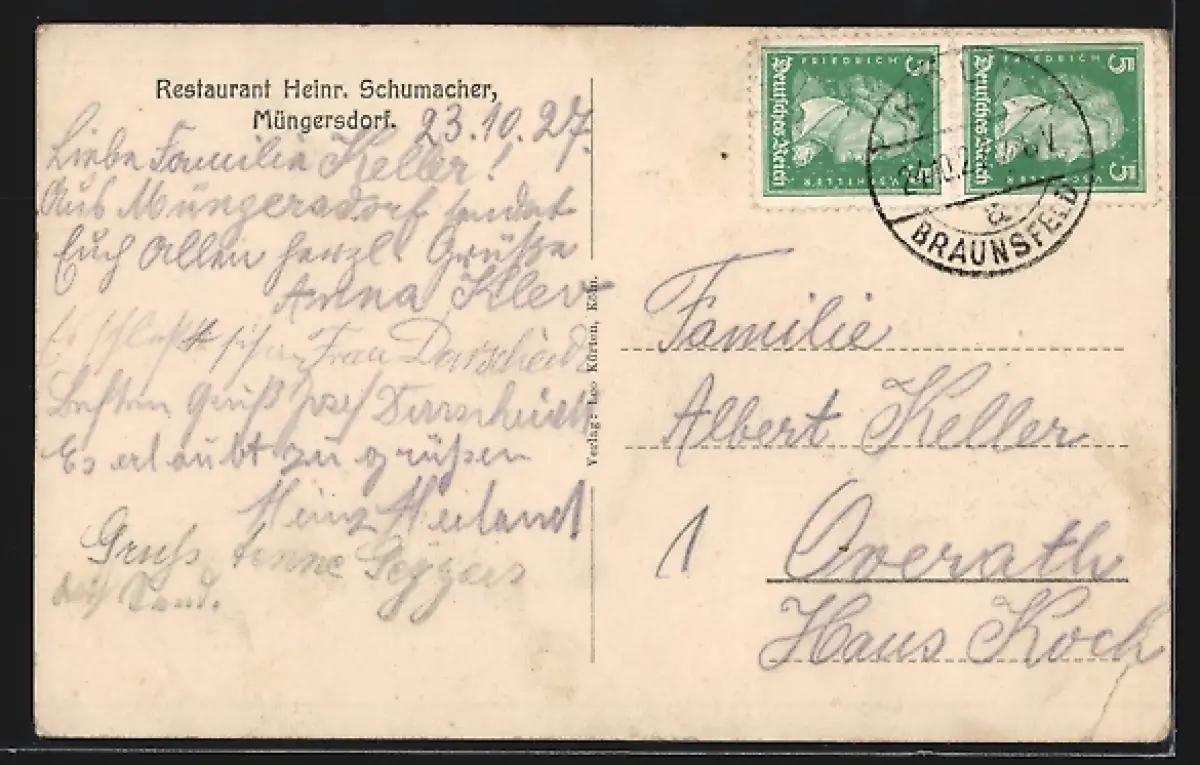 Restaurant Heinr. Schumacher,
Müngersdorf. 23.10.27.
Liebe Familie Keller!
Aus Müngersdorf sendet
Euch allen herzl. Grüße
Anna Klev
Frau Darscheid
Besten Gruß Josef Darscheidt
Es erlaubt zu grüßen
Heinz Heiland
Gruss
Verlag: Leo Kürten, Köln.
Familie
Albert Keller
1 Overath
Haus Koch
FRIEDRICH
5
Deutsches Reich
5
V. SCHILLER
FRIEDRICH
5
Deutsches Reich
5
V. SCHILLER
24.10.2
V.
a
BRAUNSFELD